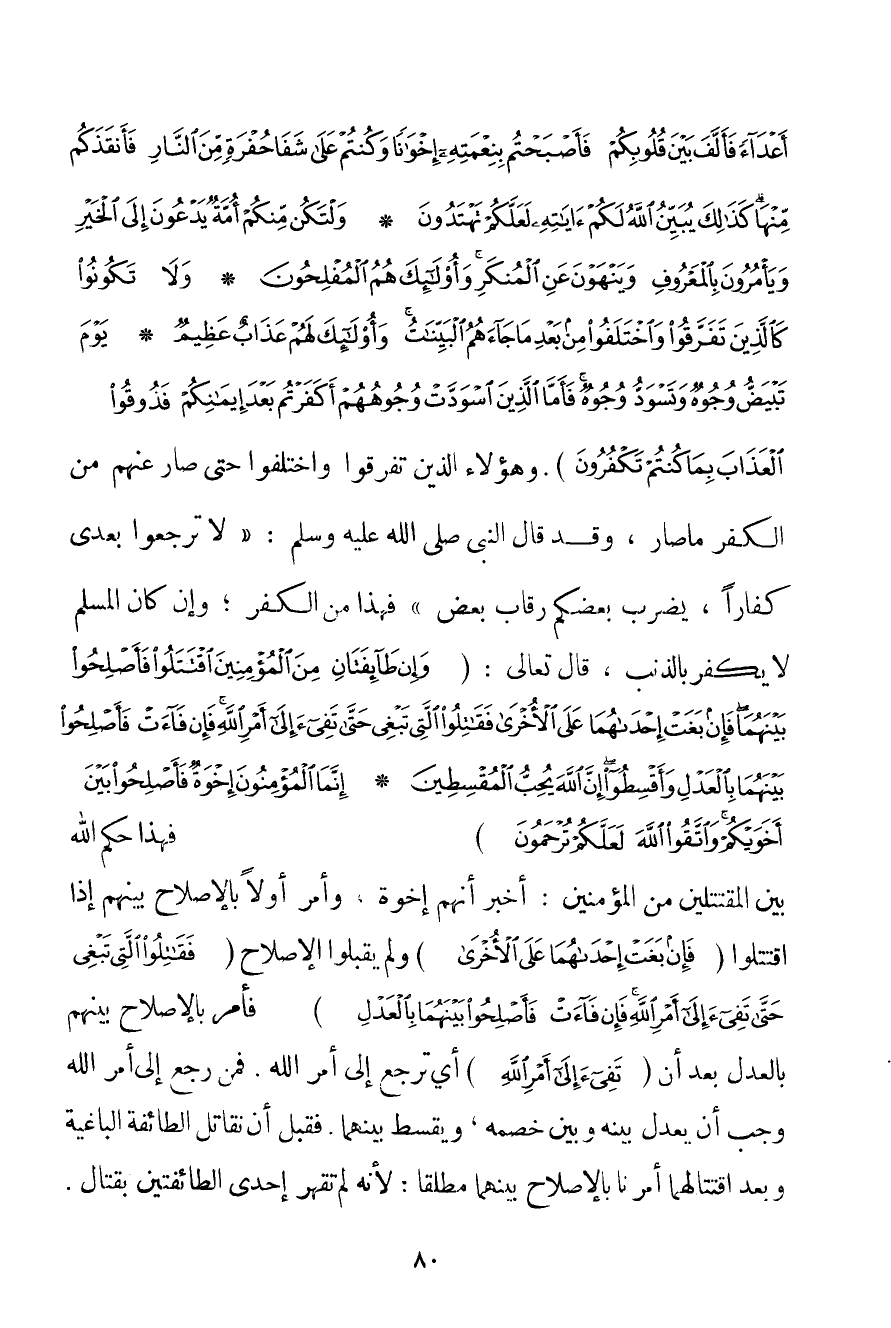 أَعْدَآءً فَأَلَّفَ بَيْنَ قُلُوبِكُمْ فَأَصْبَحْتُم بِنِعْمَتِهِۦٓ إِخْوَٰنًا وَكُنتُمْ عَلَىٰ شَفَا حُفْرَةٍ مِّنَ ٱلنَّارِ فَأَنقَذَكُم
مِّنْهَا ۗ كَذَٰلِكَ يُبَيِّنُ ٱللَّهُ لَكُمْ ءَايَٰتِهِۦ لَعَلَّكُمْ تَهْتَدُونَ * وَلْتَكُن مِّنكُمْ أُمَّةٌ يَدْعُونَ إِلَى ٱلْخَيْرِ
وَيَأْمُرُونَ بِٱلْمَعْرُوفِ وَيَنْهَوْنَ عَنِ ٱلْمُنكَرِ ۚ وَأُو۟لَٰٓئِكَ هُمُ ٱلْمُفْلِحُونَ * وَلَا تَكُونُوا۟
كَٱلَّذِينَ تَفَرَّقُوا۟ وَٱخْتَلَفُوا۟ مِنۢ بَعْدِ مَا جَآءَهُمُ ٱلْبَيِّنَٰتُ ۚ وَأُو۟لَٰٓئِكَ لَهُمْ عَذَابٌ عَظِيمٌ * يَوْمَ
تَبْيَضُّ وُجُوهٌ وَتَسْوَدُّ وُجُوهٌ ۚ فَأَمَّا ٱلَّذِينَ ٱسْوَدَّتْ وُجُوهُهُمْ أَكَفَرْتُم بَعْدَ إِيمَٰنِكُمْ فَذُوقُوا۟
ٱلْعَذَابَ بِمَا كُنتُمْ تَكْفُرُونَ ) . وهؤلاء الذين تفرقوا واختلفوا حتى صار عنهم من
الكفر ماصار ، وقد قال النبى صلى الله عليه وسلم : « لا ترجعوا بعدى
كفاراً ، يضرب بعضكم رقاب بعض » فهذا من الكفر ؛ وإن كان المسلم
لا يكفر بالذنب ، قال تعالى : ( وَإِن طَآئِفَتَانِ مِنَ ٱلْمُؤْمِنِينَ ٱقْتَتَلُوا۟ فَأَصْلِحُوا۟
بَيْنَهُمَا ۖ فَإِنۢ بَغَتْ إِحْدَىٰهُمَا عَلَى ٱلْأُخْرَىٰ فَقَٰتِلُوا۟ ٱلَّتِى تَبْغِى حَتَّىٰ تَفِىٓءَ إِلَىٰٓ أَمْرِ ٱللَّهِ ۚ فَإِن فَآءَتْ فَأَصْلِحُوا۟
بَيْنَهُمَا بِٱلْعَدْلِ وَأَقْسِطُوٓا۟ ۖ إِنَّ ٱللَّهَ يُحِبُّ ٱلْمُقْسِطِينَ * إِنَّمَا ٱلْمُؤْمِنُونَ إِخْوَةٌ فَأَصْلِحُوا۟ بَيْنَ
أَخَوَيْكُمْ ۚ وَٱتَّقُوا۟ ٱللَّهَ لَعَلَّكُمْ تُرْحَمُونَ ) فهذا حكم الله
بين المقتتلين من المؤمنين : أخبر أنهم إخوة ، وأمر أولاً بالإصلاح بينهم إذا
اقتتلوا ( فَإِنۢ بَغَتْ إِحْدَىٰهُمَا عَلَى ٱلْأُخْرَىٰ ) ولم يقبلوا الإصلاح ( فَقَٰتِلُوا۟ ٱلَّتِى تَبْغِى
حَتَّىٰ تَفِىٓءَ إِلَىٰٓ أَمْرِ ٱللَّهِ ۚ فَإِن فَآءَتْ فَأَصْلِحُوا۟ بَيْنَهُمَا بِٱلْعَدْلِ ) فأمر بالإصلاح بينهم
بالعدل بعد أن ( تَفِىٓءَ إِلَىٰٓ أَمْرِ ٱللَّهِ ) أي ترجع إلى أمر الله . فمن رجع إلى أمر الله
وجب أن يعدل بينه وبين خصمه ، ويقسط بينهما . فقبل أن نقاتل الطائفة الباغية
وبعد اقتتالهما أمرنا بالإصلاح بينهما مطلقا : لأنه لم تقهر إحدى الطائفتين بقتال .
٨٠